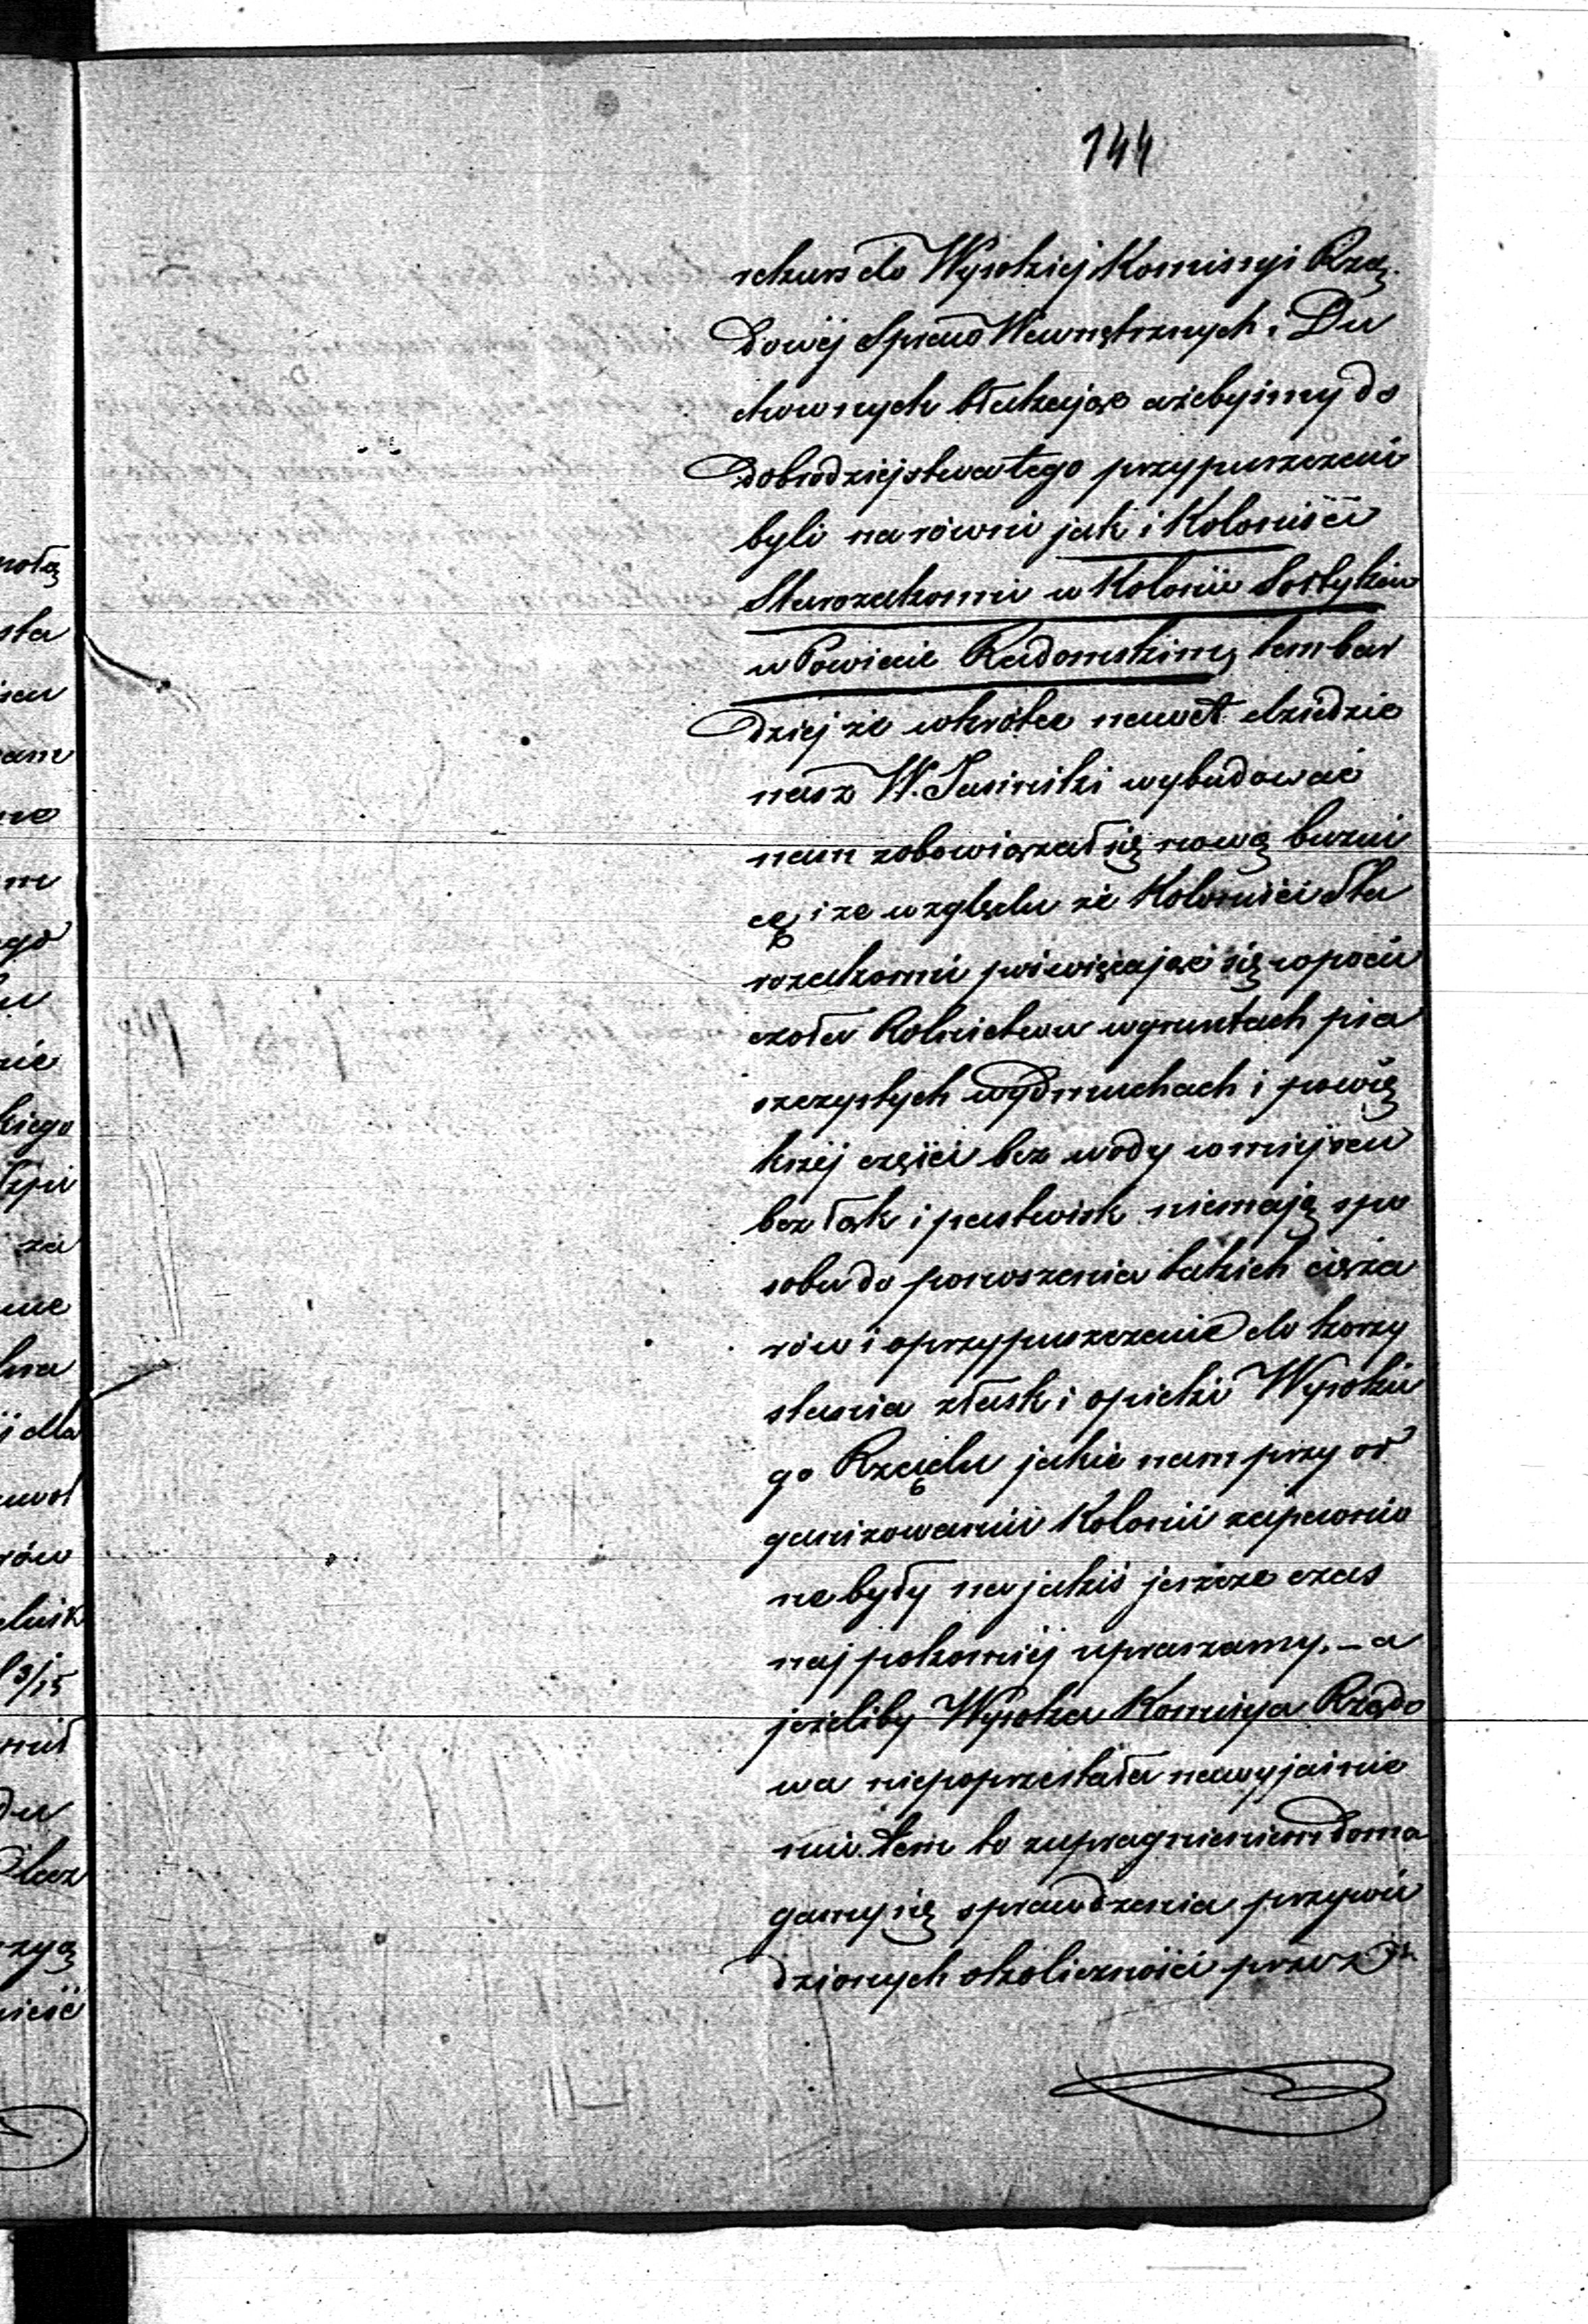 144
rekurs do Wysokiej Komissyi Rzą
dowéj Spraw Wewnętrznych i Du
chownych błakając ażebyśmy do
Dobrodziejstwa tego przypuszczeni
byli na równi jak i Koloniści
Starozakonni w Kolonii Sołtyków
w Powiecie Radomskim, tembar
dziej że wkrótce nawet dziedzic
nasz W. Jasiński wybudować
nam zobowiązał się nową bużni
cę i ze względu że Koloniści Sta
rozakonni poświęcając się w pocie
czoła Rolnictwu w gruntach pia
szczystych wydmuchach i powię
kszéj części bez wody w miejscu
bez łąk i pastwisk niemają spo
sobu do ponoszenia takich cięża
rów i o przypuszczenie do korzy
stania z łask i opieki Wysokie
go Rządu jakie nam przy or
ganizowaniu Kolonii zapewnio
ne były na jakiś jeszcze czas
najpokorniéj upraszamy. – a
jeżeliby Wysoka Komisya Rządo
wa niepoprzestała na wyjaśnie
niu tem to z upragnieniem doma
gamy się sprawdzenia przywie
dzionych okoliczności przez
notą
sta
am
ego
nie
kiego
za
dla
rów
3/15
zyą